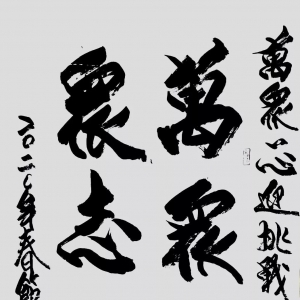 萬眾一心迎挑戰
萬眾
眾志
二〇二〇年春節